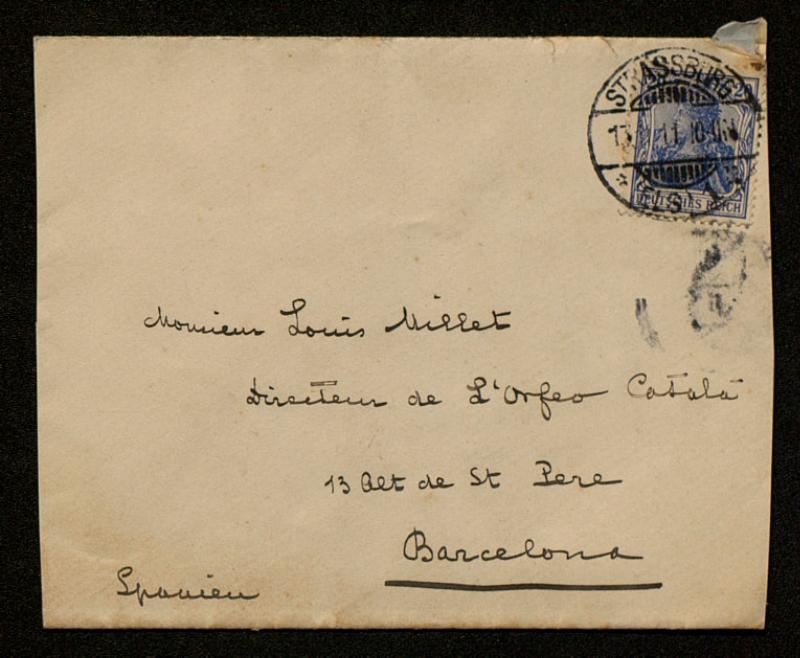 STRASSBURG
13 11 10-
ELS
20
DEUTSCHES REICH
Monsieur Louis Millet
Directeur de L'Orfeo Català
13 Alt de St Pere
Barcelona
Spanien